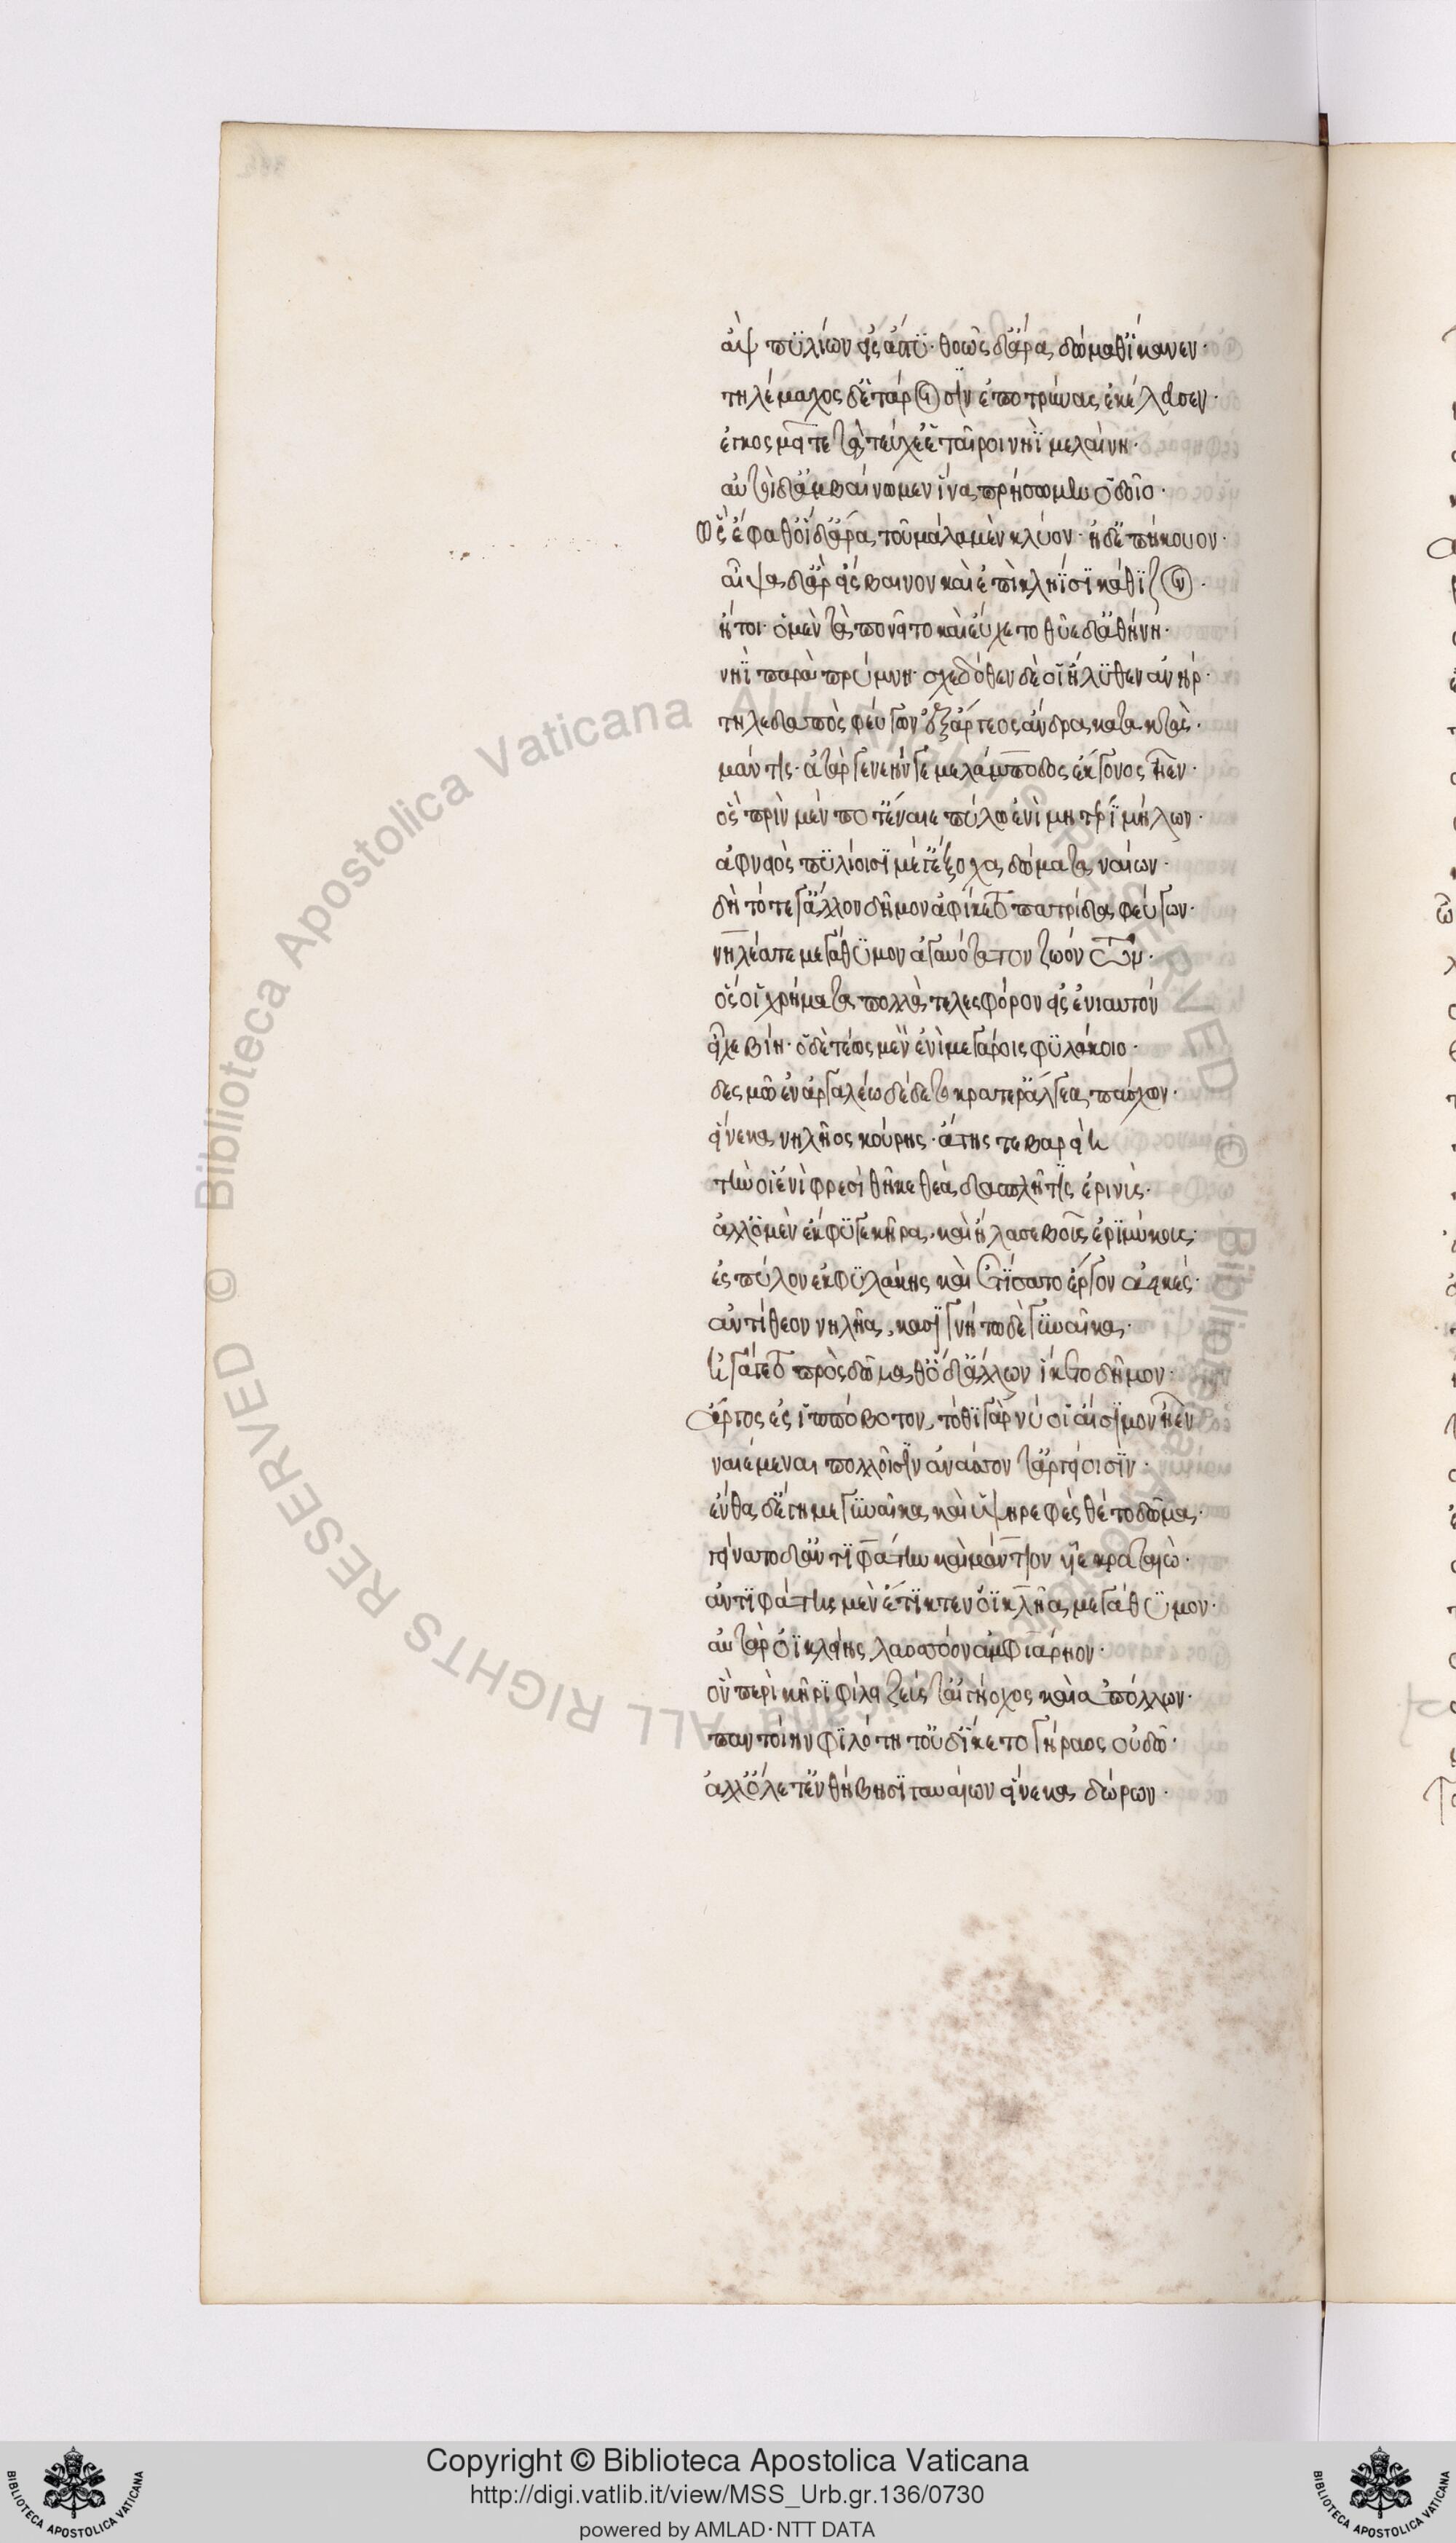 ἂψ πυλίων εἰς ἄστυ· θοῶς δ' ἄρα δώμαθ' ἵκανεν·
τηλέμαχος δ' ἑτάροισιν ἐποτρύνας ἐκέλευσεν·
ἐγκοσμεῖτε τὰ τεύχε' ἑταῖροι νηῒ μελαίνη·
αὐτοὶ δ' ἀμβαίνωμεν ἵνα πρήσσωμεν ὁδοῖο·
Ὣς ἔφαθ' οἱ δ' ἄρα τοῦ μάλα μὲν κλύον· ἠδ' ἐπήκουον·
αἶψα δ' ἄρ' εἴσβαινον καὶ ἐπὶ κληῖσι κάθιζον·
ἤτοι ὁ μὲν τὰ πονεῖτο καὶ εὔχετο θῦε δ' ἀθήνη·
νηῒ παρὰ πρύμνη· σχεδόθεν δέ οἱ ἤλυθεν ἀνὴρ·
τηλεδαπὸς φεύγων ἐξ ἄργεος ἄνδρα κατακτάς·
μάντις· ἀτὰρ γενεήν γε μελάμποδος ἔκγονος ἦεν·
ὃς πρὶν μέν ποτ' ἔναιε πύλω ἐνὶ μητρὶ μήλων·
ἀφνειὸς πυλίοισι μέγ' ἔξοχα δώματα ναίων·
δὴ τότε γ' ἄλλον δῆμον ἀφίκετο πατρίδα φεύγων·
νηλέα τε μεγάθυμον ἀγαυότατον ζωόντων·
ὅς οἱ χρήματα πολλὰ τελεσφόρον εἰς ἐνιαυτὸν
εἶχε βίη· ὁ δὲ τέως μὲν ἐνὶ μεγάροις φυλάκοιο·
δεσμῶ ἐν ἀργαλέω δέδετο κρατέρ' ἄλγεα πάσχων·
εἵνεκα νηλῆος κούρης· ἄτης τε βαρείης
τήν οἱ ἐνὶ φρεσὶ θῆκε θεὰ δασπλῆτις ἐρινύς·
ἀλλ' ὁ μὲν ἔκφυγε κῆρα, καὶ ἤλασε βοῦς ἐριμύκους·
ἐς πύλον ἐκ φυλάκης καὶ ἐτίσατο ἔργον ἀεικὲς·
ἀντίθεον νηλῆα, κασιγνήτω δὲ γυναῖκα·
ἠγάγετο πρὸς δώμαθ' ὁ δ' ἄλλων ἵκετο δῆμον·
ἄργος ἐς ἱππόβοτον, τόθι γάρ νύ οἱ αἴσιμον ἦεν
ναιέμεναι πολλοῖσιν ἀνάσσοντ' ἀργείοισιν·
ἔνθα δ' ἔγημε γυναῖκα καὶ ὑψηρεφὲς θέτο δῶμα·
γείνατο δ' ἀντιφάτην καὶ μάντιον υἷε κραταιώ·
ἀντιφάτης μὲν ἔτικτεν ὀϊκλῆα μεγάθυμον·
αὐτὰρ ὀϊκλείης λαοσσόον ἀμφιάρηον·
ὃν περὶ κῆρι φίλει ζεύς τ' αἰγίοχος καὶ ἀπόλλων·
παντοίην φιλότητ' οὐδ' ἵκετο γήραος οὐδὸν·
ἀλλ' ὄλετ' ἐν θήβησι γυναίων εἵνεκα δώρων·
© Biblioteca Apostolica Vaticana ALL RIGHTS RESERVED © Biblioteca Apostolica Vaticana ALL RIGHTS RESERVED
Copyright © Biblioteca Apostolica Vaticana
http://digi.vatlib.it/view/MSS_Urb.gr.136/0730
powered by AMLAD·NTT DATA
BIBLIOTECA APOSTOLICA VATICANA
BIBLIOTECA APOSTOLICA VATICANA